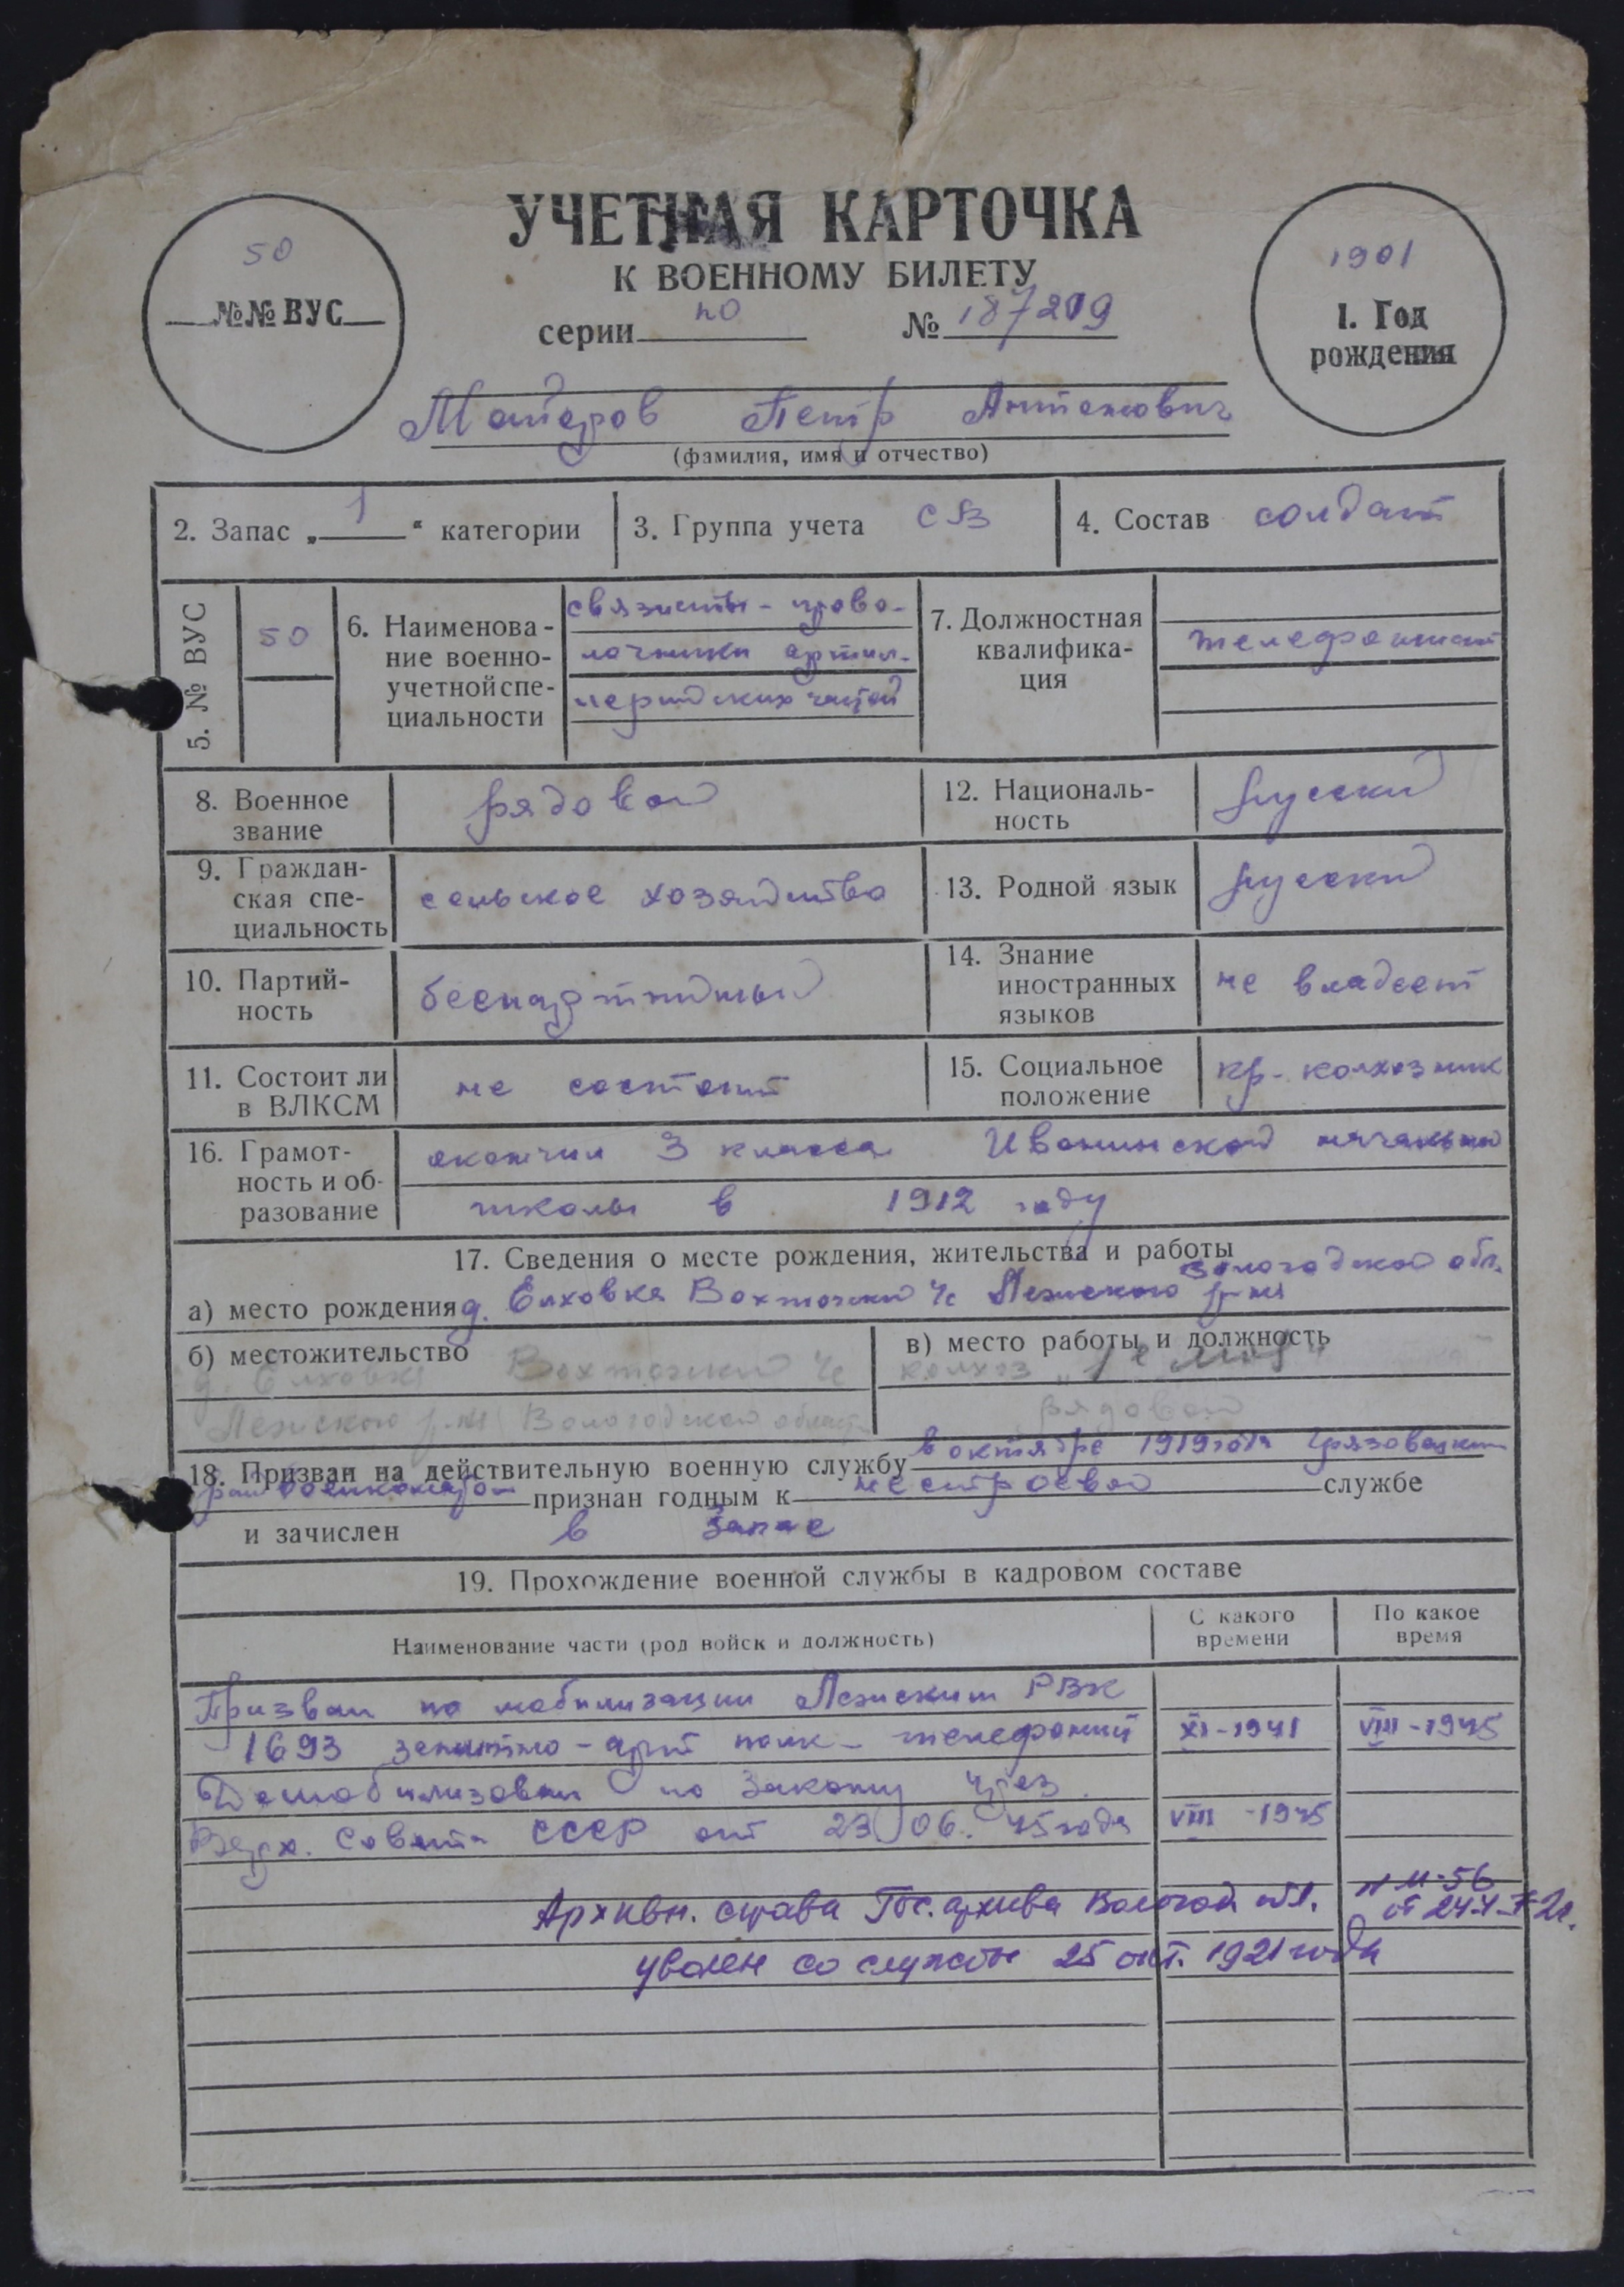 УЧЕТНАЯ КАРТОЧКА
К ВОЕННОМУ БИЛЕТУ
серии по № 187219
50
№№ ВУС
1901
1. Год
рождения
Петр Антонович
(фамилия, имя и отчество)
2. Запас „1“ категории
3. Группа учета СВ
4. Состав солдат
5. № ВУС
50
6. Наименова-
ние военно-
учетной спе-
циальности
связисты-прово-
лочники артил-
лерийских частей
7. Должностная
квалифика-
ция
телефонист
8. Военное
звание
рядовой
12. Националь-
ность
русский
9. Граждан-
ская спе-
циальность
сельское хозяйство
13. Родной язык
русский
10. Партий-
ность
беспартийный
14. Знание
иностранных
языков
не владеет
11. Состоит ли
в ВЛКСМ
не состоит
15. Социальное
положение
кр-колхозник
16. Грамот-
ность и об-
разование
окончил 3 класса Ивонинской начальной
школы в 1912 году
17. Сведения о месте рождения, жительства и работы
а) место рождения д. Елховка Вохтожский с/с Лежского р-на Вологодской обл.
б) местожительство
д. Елховка Вохтожский с/с
Лежского р-на Вологодской области
в) место работы и должность
колхоз „1е Мая“
рядовой
18. Призван на действительную военную службу в октябре 1919 года Грязовецким
райвоенкоматом признан годным к нестроевой службе
и зачислен в запас
19. Прохождение военной службы в кадровом составе
Наименование части (род войск и должность)
С какого
времени
По какое
время
Призван по мобилизации Лежским РВК
1693 зенитно-арт полк - телефонист XI-1941 VIII-1945
Демобилизован по Закону през.
Верх. Совета СССР от 23/06. 45 года VIII-1945
Архивн. справа Гос. архива Вологод обл. № М-56
уволен со службы 25 окт. 1921 года